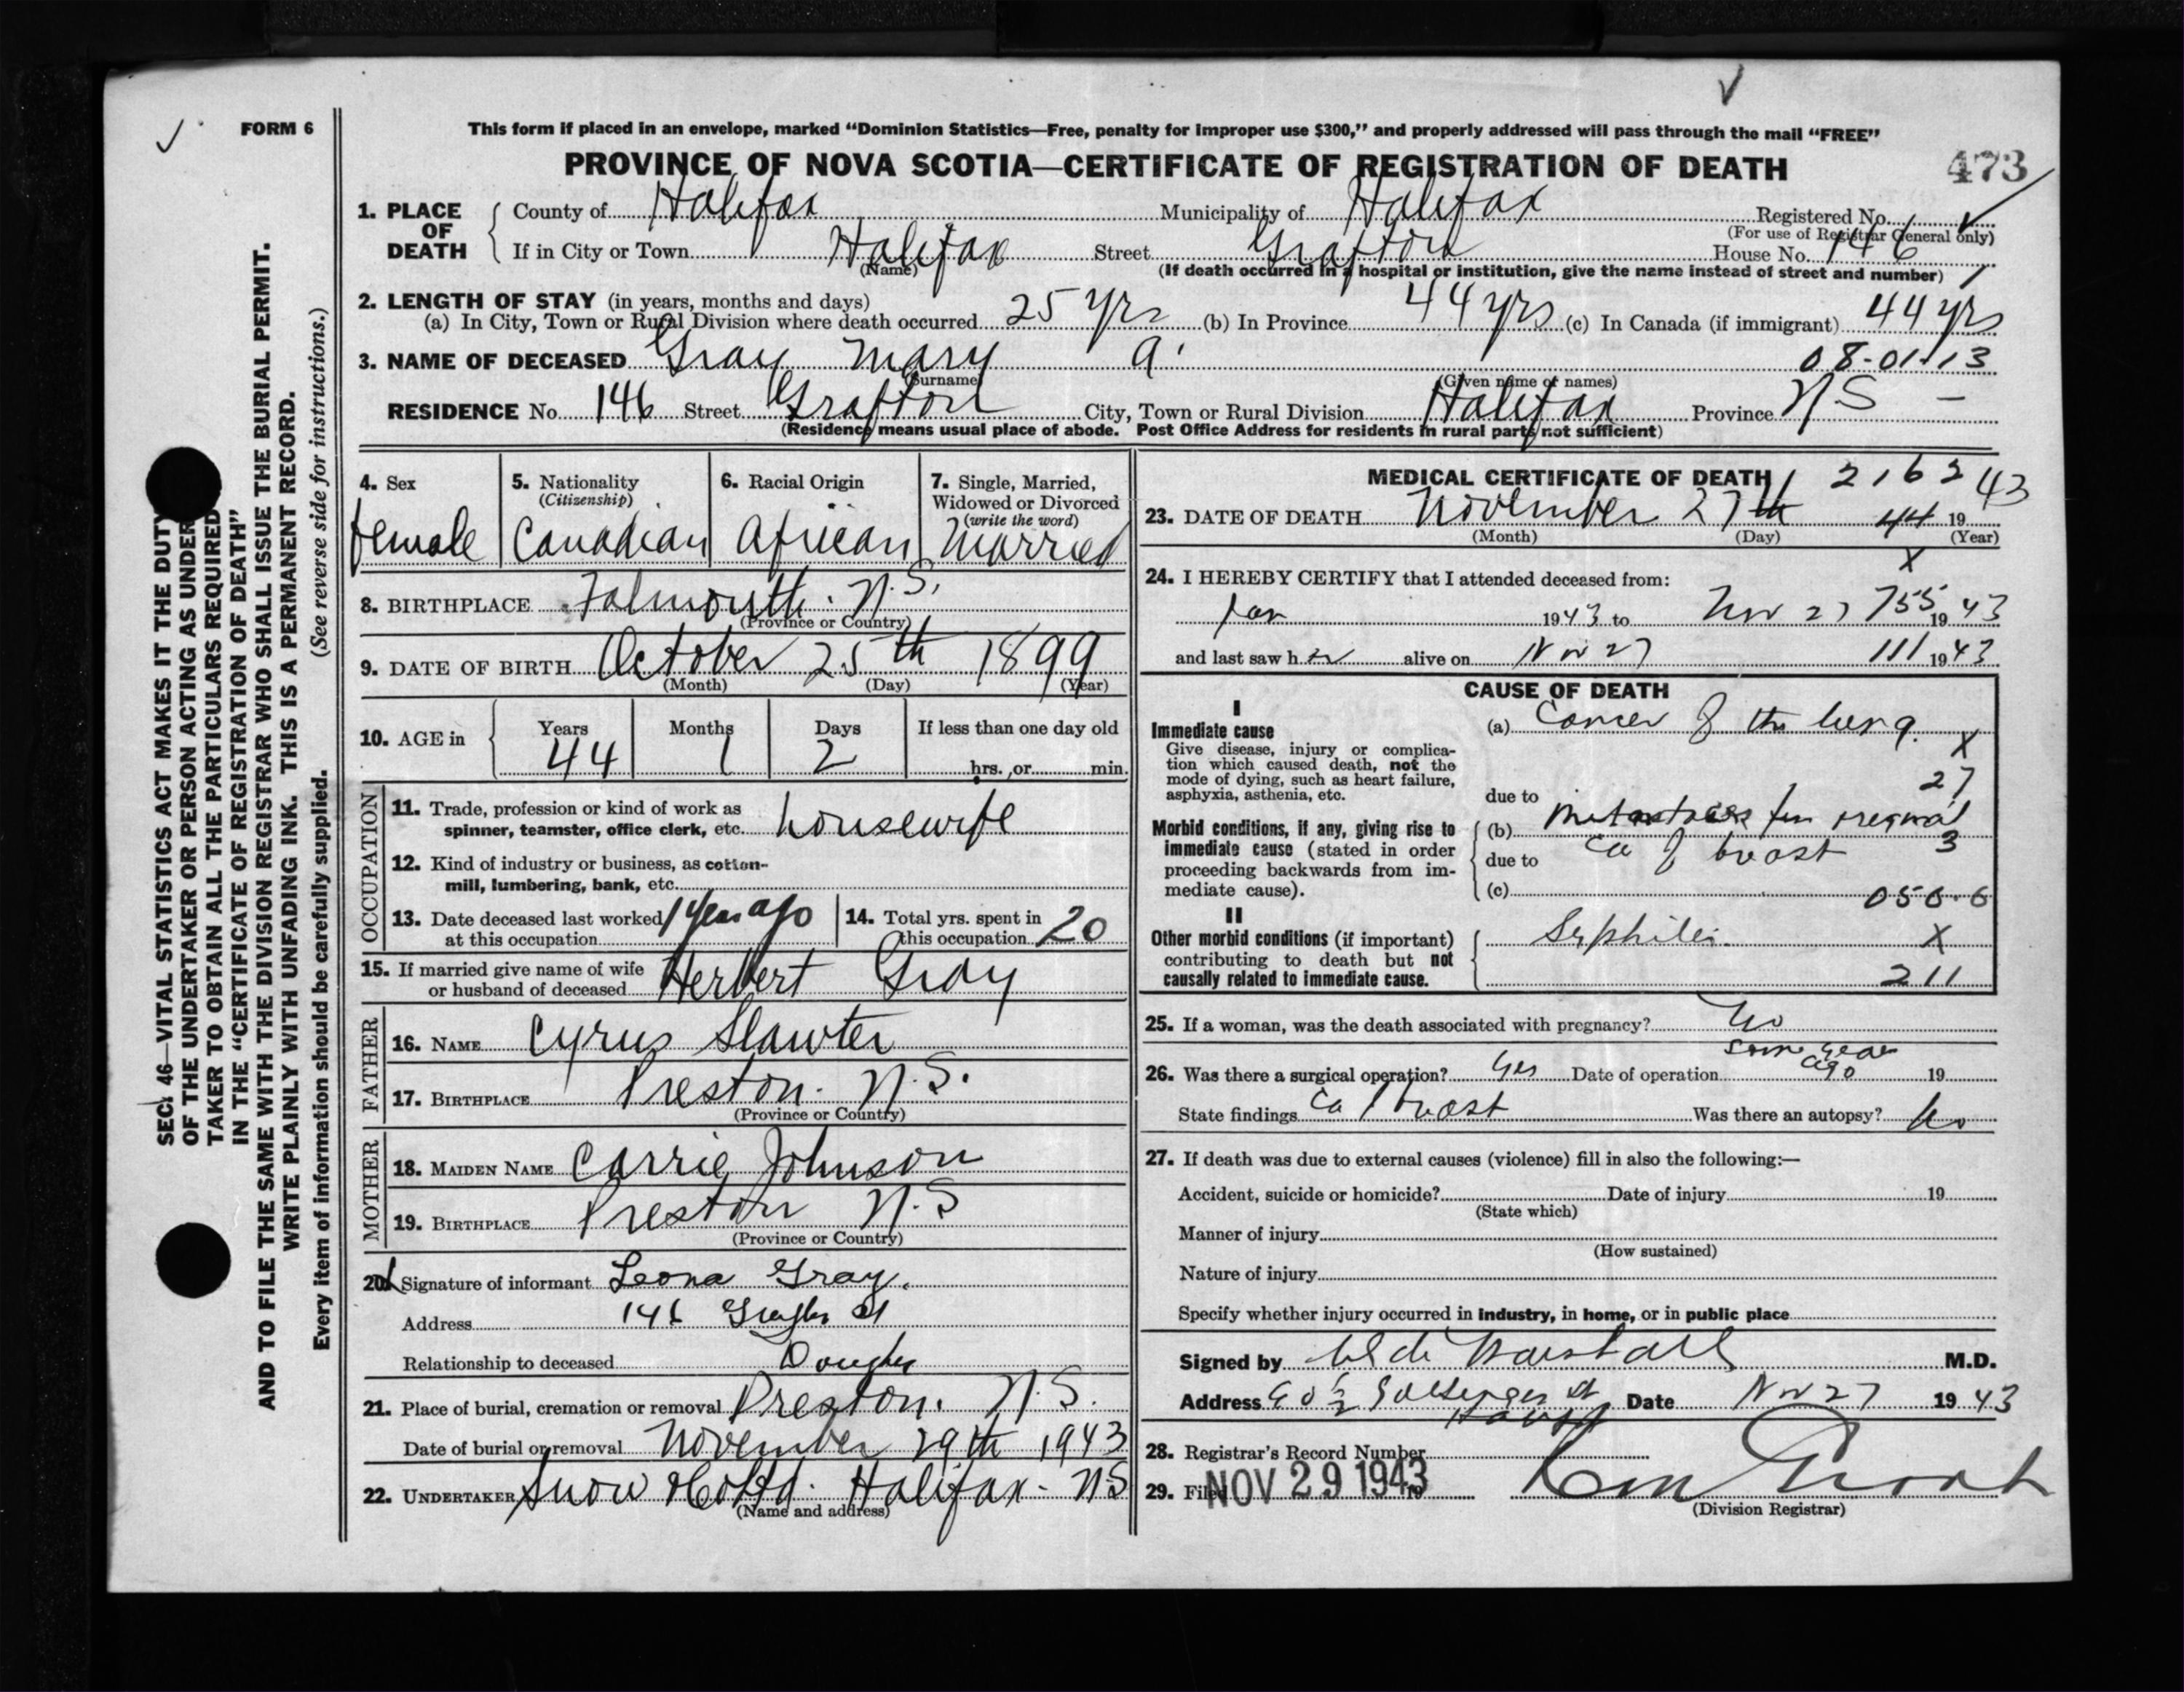 FORM 6
This form if placed in an envelope, marked “Dominion Statistics—Free, penalty for improper use $300,” and properly addressed will pass through the mail “FREE”
PROVINCE OF NOVA SCOTIA—CERTIFICATE OF REGISTRATION OF DEATH
473
1. PLACE OF DEATH
County of Halifax Municipality of Halifax Registered No.
(For use of Registrar General only)
If in City or Town Halifax Street Grafton House No. 146
(Name) (If death occurred in a hospital or institution, give the name instead of street and number) 1
2. LENGTH OF STAY (in years, months and days)
(a) In City, Town or Rural Division where death occurred 25 yrs (b) In Province 44 yrs (c) In Canada (if immigrant) 44 yrs
3. NAME OF DECEASED Gray Mary A. 08-01-13
(Surname) (Given name or names)
RESIDENCE No. 146 Street Grafton City, Town or Rural Division Halifax Province N.S –
(Residence means usual place of abode. Post Office Address for residents in rural parts not sufficient)
4. Sex
female
5. Nationality
(Citizenship)
Canadian
6. Racial Origin
African
7. Single, Married,
Widowed or Divorced
(write the word)
Married
8. BIRTHPLACE Falmouth. N.S.
(Province or Country)
9. DATE OF BIRTH October 25th 1899
(Month) (Day) (Year)
10. AGE in Years Months Days If less than one day old
44 1 2 hrs. or min.
OCCUPATION
11. Trade, profession or kind of work as
spinner, teamster, office clerk, etc. housewife
12. Kind of industry or business, as cotton-
mill, lumbering, bank, etc.
13. Date deceased last worked 1 year ago
at this occupation
14. Total yrs. spent in
this occupation 20
15. If married give name of wife
or husband of deceased Herbert Gray
FATHER
16. NAME Cyrus Slawter
17. BIRTHPLACE Preston. N.S.
(Province or Country)
MOTHER
18. MAIDEN NAME Carrie Johnson
19. BIRTHPLACE Preston N.S
(Province or Country)
20. Signature of informant Leona Gray.
Address 146 St
Relationship to deceased
21. Place of burial, cremation or removal Preston. N.S.
Date of burial or removal November 29th 1943
22. UNDERTAKER Snow & Co Ltd. Halifax - N.S
(Name and address)
MEDICAL CERTIFICATE OF DEATH
2162 43
23. DATE OF DEATH November 27th 44 19
(Month) (Day) (Year)
X
24. I HEREBY CERTIFY that I attended deceased from:
Jan 1943 to Nov 27 755 19 43
and last saw h er alive on Nov 27 111 1943
CAUSE OF DEATH
I
Immediate cause
Give disease, injury or complica-
tion which caused death, not the
mode of dying, such as heart failure,
asphyxia, asthenia, etc.
(a) Cancer of the lung. X
27
due to
Morbid conditions, if any, giving rise to
immediate cause (stated in order
proceeding backwards from im-
mediate cause).
(b) Metastases
due to ca of breast 3
(c) 050.6
II
Other morbid conditions (if important)
contributing to death but not
causally related to immediate cause.
Syphilis. X
211
25. If a woman, was the death associated with pregnancy? No
26. Was there a surgical operation? Yes Date of operation some years ago 19
State findings ca of breast Was there an autopsy? No
27. If death was due to external causes (violence) fill in also the following:—
Accident, suicide or homicide? Date of injury 19
(State which)
Manner of injury
(How sustained)
Nature of injury
Specify whether injury occurred in industry, in home, or in public place
Signed by M.D.
Address Date Nov 27 1943
28. Registrar's Record Number
29. Filed NOV 29 1943 19
(Division Registrar)
SEC. 46—VITAL STATISTICS ACT MAKES IT THE DUTY
OF THE UNDERTAKER OR PERSON ACTING AS UNDER
TAKER TO OBTAIN ALL THE PARTICULARS REQUIRED
IN THE “CERTIFICATE OF REGISTRATION OF DEATH”
AND TO FILE THE SAME WITH THE DIVISION REGISTRAR WHO SHALL ISSUE THE BURIAL PERMIT.
WRITE PLAINLY WITH UNFADING INK. THIS IS A PERMANENT RECORD.
Every item of information should be carefully supplied. (See reverse side for instructions.)